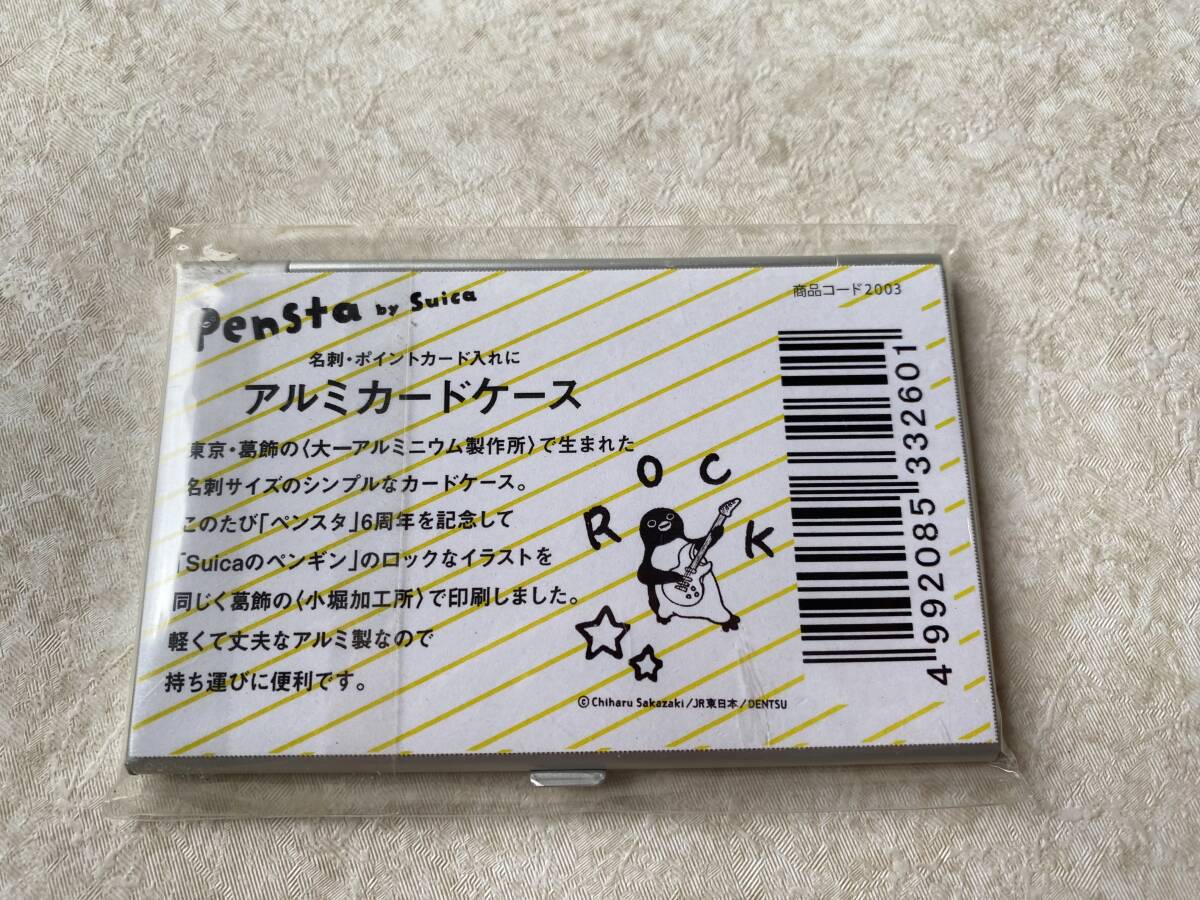 Pensta by Suica
商品コード2003
名刺・ポイントカード入れに
アルミカードケース
東京・葛飾の〈大一アルミニウム製作所〉で生まれた
名刺サイズのシンプルなカードケース。
このたび「ペンスタ」6周年を記念して
「Suicaのペンギン」のロックなイラストを
同じく葛飾の〈小堀加工所〉で印刷しました。
軽くて丈夫なアルミ製なので
持ち運びに便利です。
ROCK
©Chiharu Sakazaki/JR東日本/DENTSU
4992085332601